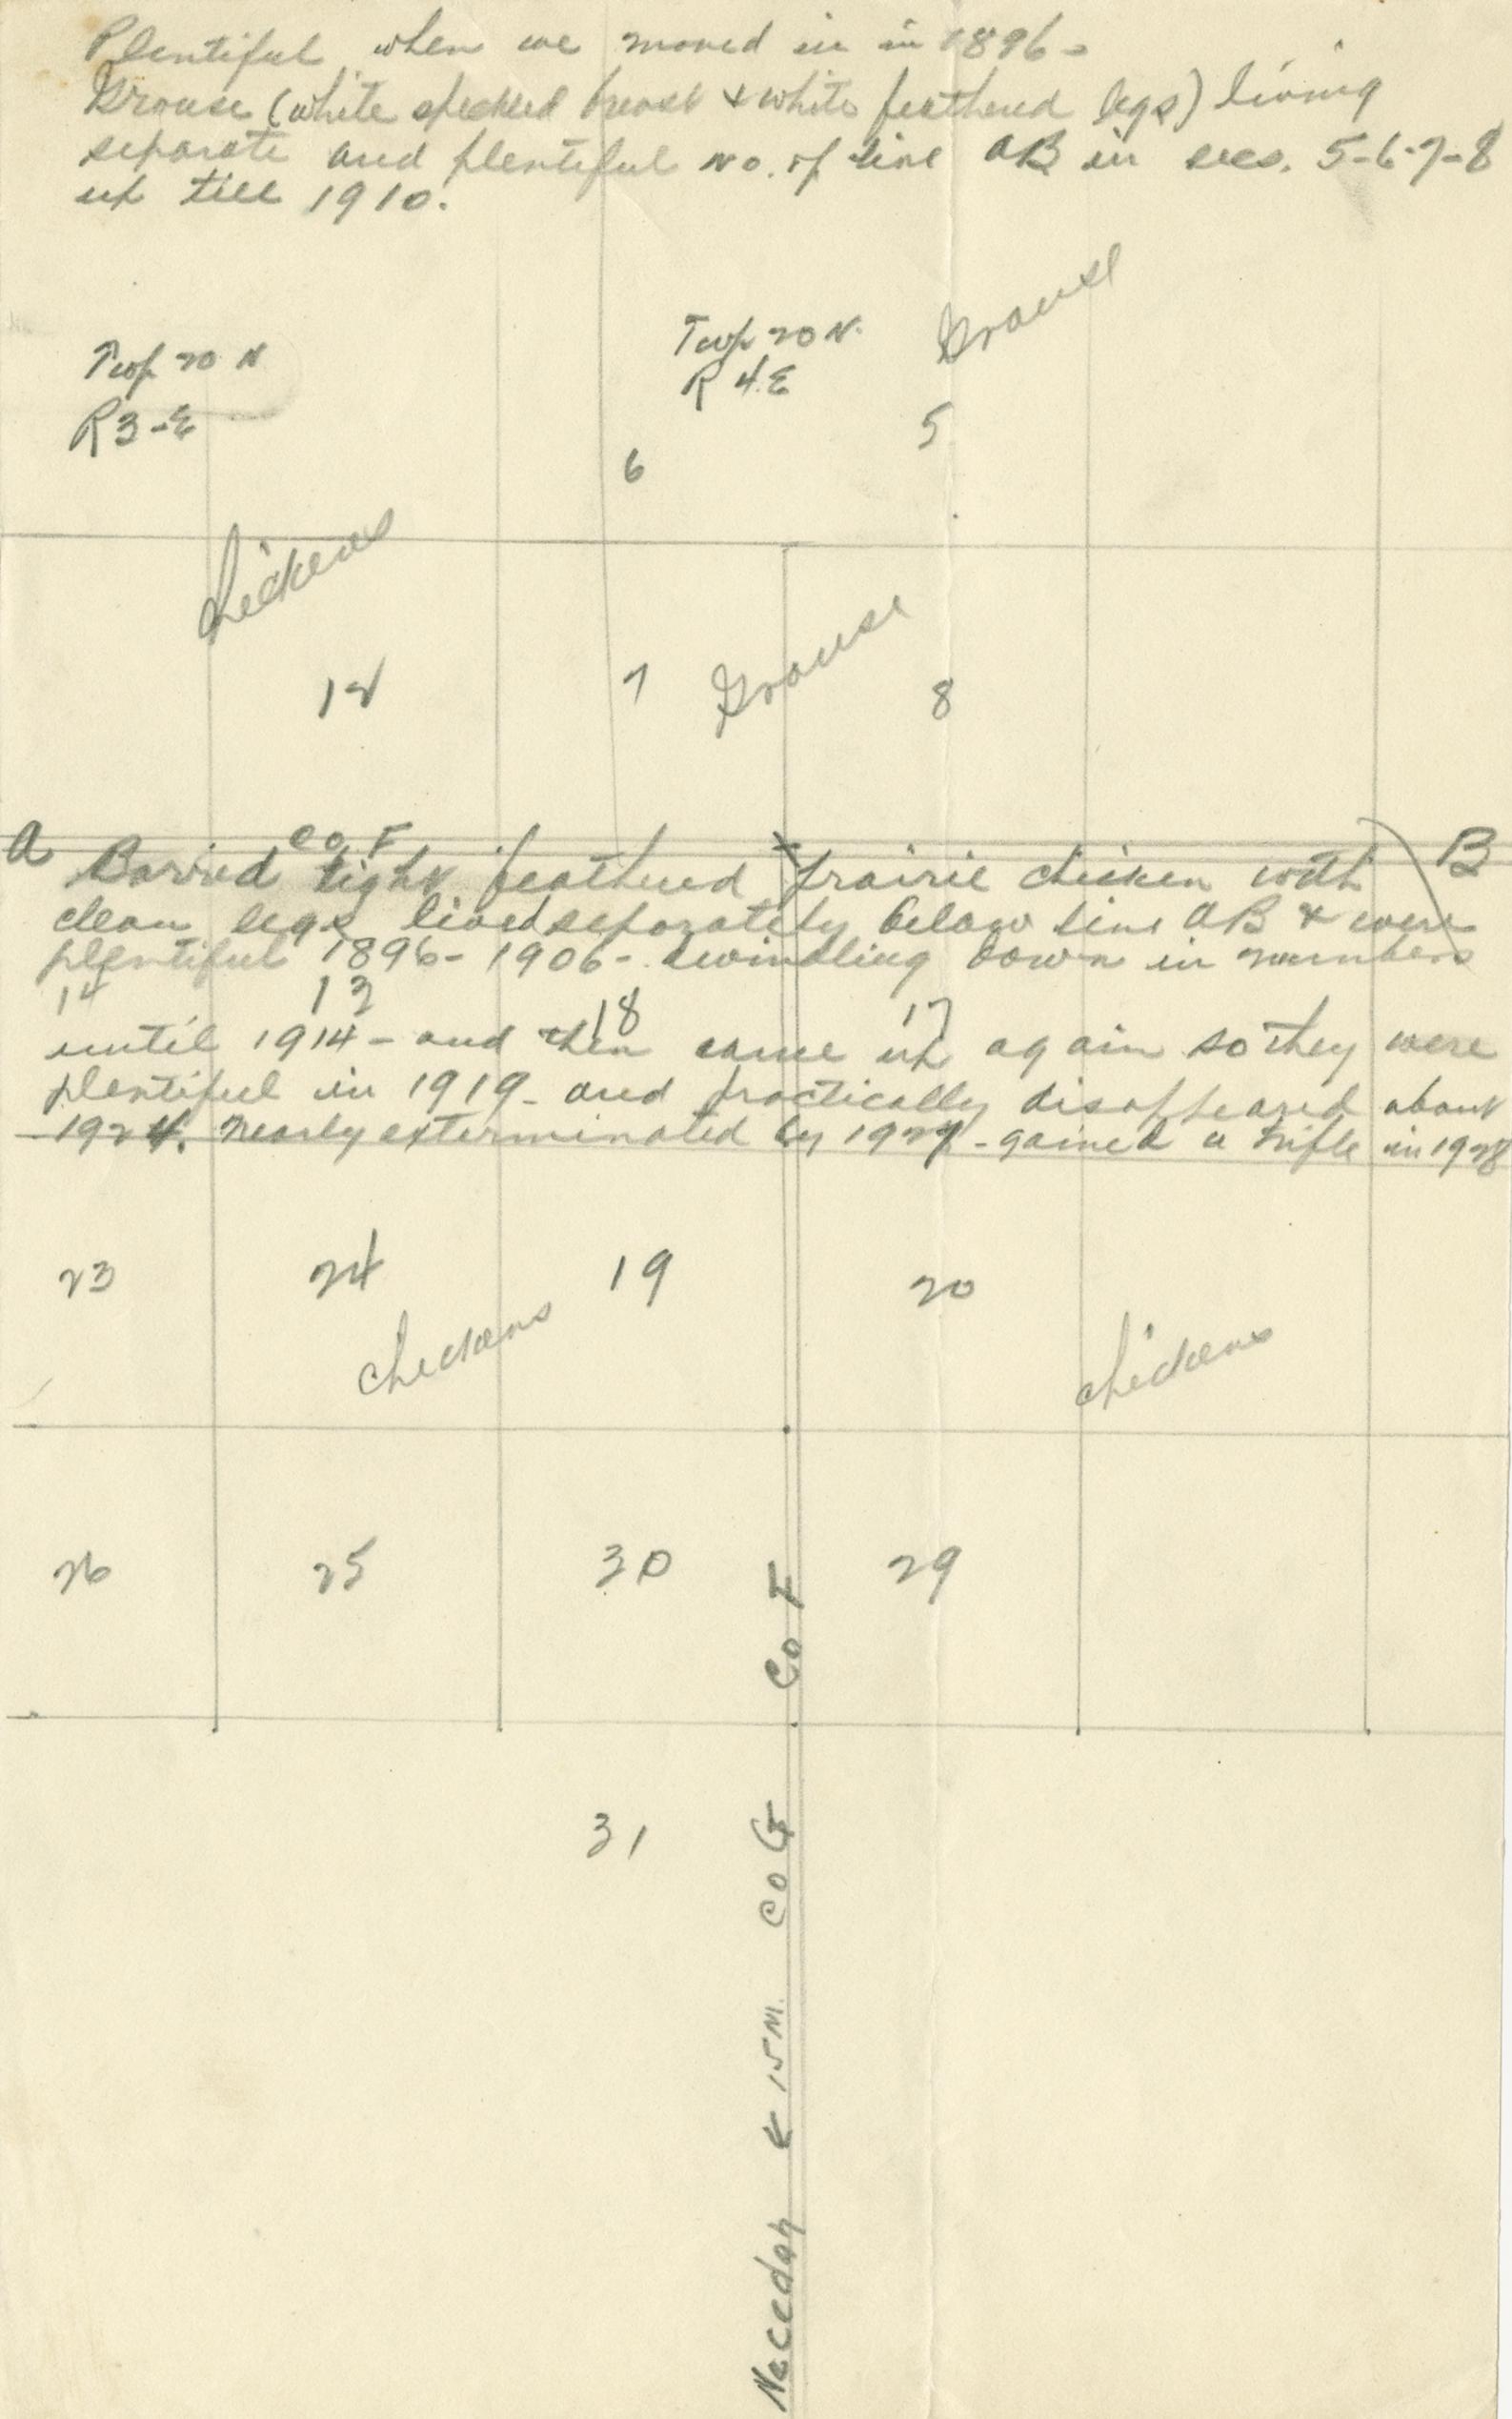 Plentiful when we moved in in 1896-
Grouse (white speckled breast & white feathered legs) living
separate and plentiful no. of line AB in secs. 5-6-7-8
up till 1910.
Grouse
Twp 20 N
R3-E
Twp 20 N.
R 4.E
5
6
Chickens
12
7
Grouse
8
Co F
A
B
Barred tight feathered prairie chicken with
clean legs lived separately below line AB & were
plentiful 1896-1906- dwindling down in numbers
14 13 18 17
until 1914- and then came up again so they were
plentiful in 1919- and practically disappeared about
1924. Nearly exterminated by 1927-gained a trifle in 1928
23 24 19 20
chickens
chickens
26 25 30 29
Co F
31
Co G
Necedah & 15 M.